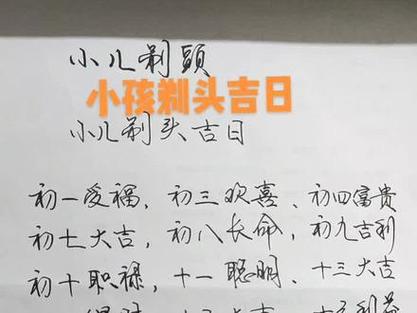 小儿剃头
小孩剃头吉日
小儿剃头吉日
初一受福、初三欢喜、初四富贵
初七大吉，初八长命，初九吉利
初十职禄，十一聪明、十三大吉